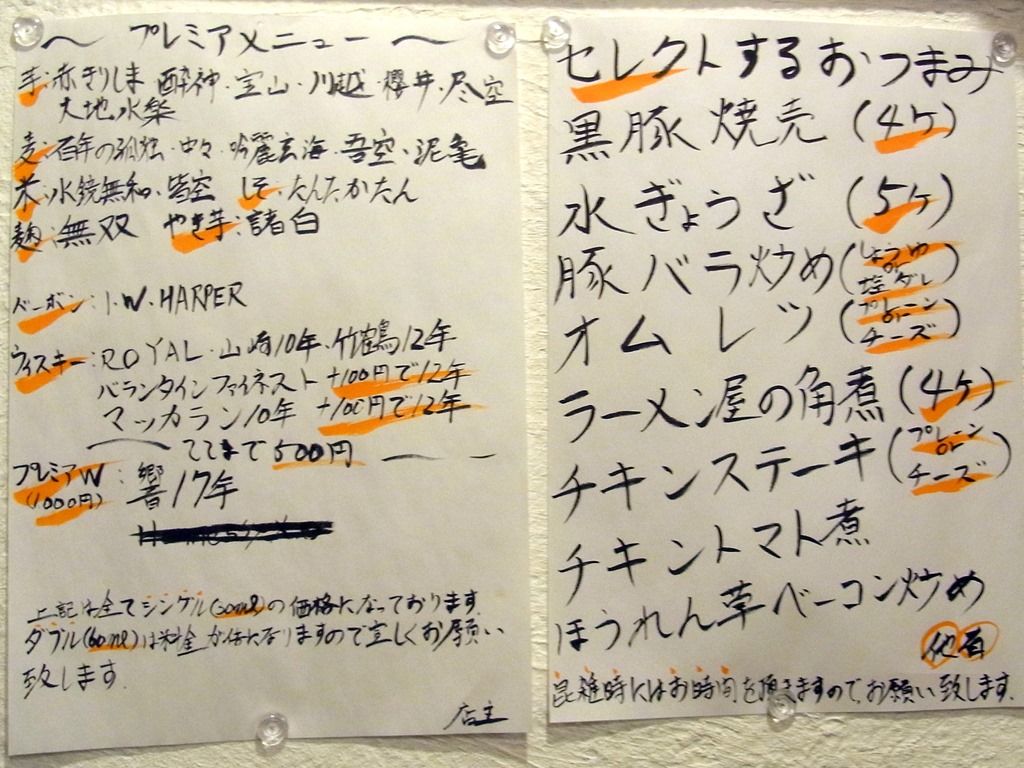 〜 プレミアメニュー 〜
芋:赤きりしま 酔神・宝山・川越・櫻井・尽空
大地水楽
麦:百年の孤独・中々・吟麗玄海・吾空・泥亀
米:水鏡無私・皆空 しそ:たんたかたん
麹:無双 やき芋:諸白
バーボン:I.W.HARPER
ウィスキー:ROYAL・山崎10年・竹鶴12年
バランタインファイネスト +100円で12年
マッカラン10年 +100円で12年
ここまで500円
プレミアW:響17年
(1000円)
上記は全てシングル(30ml)の価格になっております
ダブル(60ml)は料金が倍になりますので宜しくお願い
致します.
店主
セレクトするおつまみ
黒豚焼売(4ヶ)
水ぎょうざ(5ヶ)
豚バラ炒め(しょうゆor塩ダレ)
オムレツ(プレーンorチーズ)
ラーメン屋の角煮(4ヶ)
チキンステーキ(プレーンorチーズ)
チキントマト煮
ほうれん草ベーコン炒め
混雑時にはお時間を頂きますので、お願い致します.